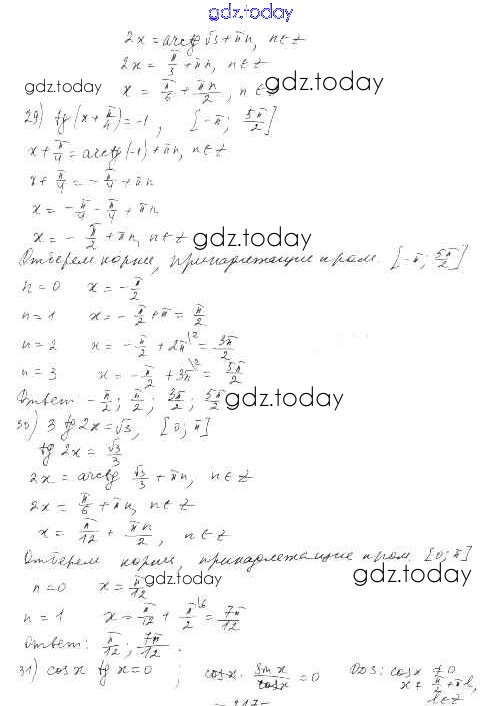 gdz.today
2x = arctg √3 + πn, n∈Z
2x = π/3 + πn, n∈Z
gdz.today
x = π/6 + πn/2, n∈Z
gdz.today
29) tg(x + π/4) = -1, [-π; 5π/2]
x + π/4 = arctg(-1) + πn, n∈Z
x + π/4 = -π/4 + πn
x = -π/4 - π/4 + πn
x = -π/2 + πn, n∈Z
gdz.today
Отберем корни, принадлежащие пром. [-π; 5π/2]
n = 0 x = -π/2
n = 1 x = -π/2 + π = π/2
n = 2 x = -π/2 + 2π\2 = 3π/2
n = 3 x = -π/2 + 3π\2 = 5π/2
Ответ -π/2; π/2; 3π/2; 5π/2
gdz.today
30) 3 tg 2x = √3, [0; π]
tg 2x = √3/3
2x = arctg √3/3 + πn, n∈Z
2x = π/6 + πn, n∈Z
x = π/12 + πn/2, n∈Z
Отберем корни, принадлежащие пром. [0; π]
n = 0 x = π/12
gdz.today
gdz.today
n = 1 x = π/12 + π/2\6 = 7π/12
Ответ: π/12; 7π/12.
31) cos x tg x = 0; cos x · sin x/cos x = 0 ОДЗ: cos x ≠ 0
x ≠ π/2 + πk,
k∈Z
- 217 -